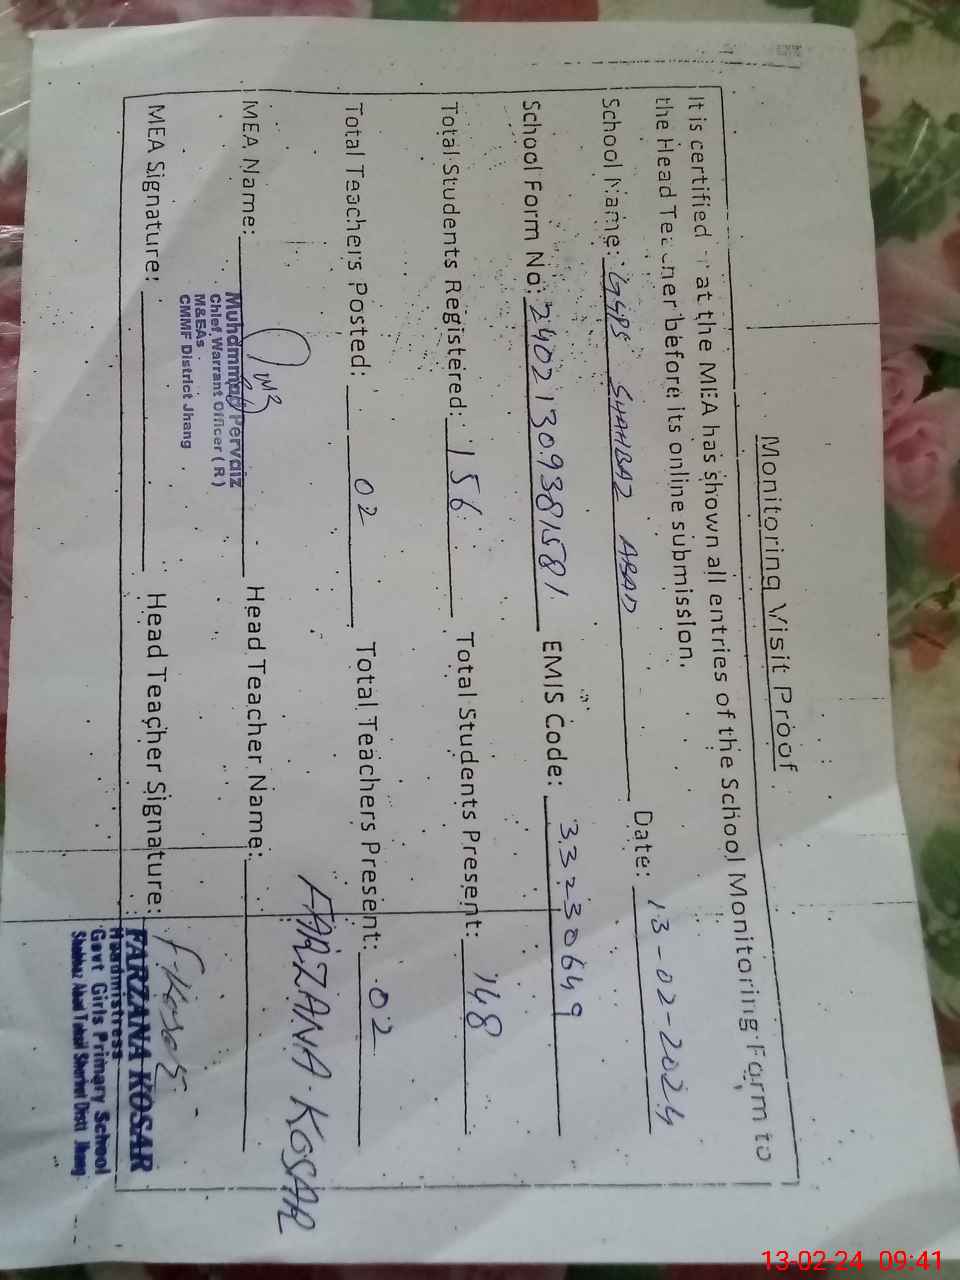 Monitoring Visit Proof
It is certified that the MEA has shown all entries of the School Monitoring Form to
the Head Teacher before its online submission.
School Name: GGPS SHAHBAZ ABAD Date: 13-02-2024
School Form No: 24021309381581 EMIS Code: 33230649
Total Students Registered: 156 Total Students Present: 148
Total Teachers Posted: 02 Total Teachers Present: 02
MEA Name: Head Teacher Name: FARZANA KOSAR
Muhammad Pervaiz
Chief Warrant Officer (R)
M&EAs
CMMF District Jhang
MEA Signature: Head Teacher Signature: F. Kosar
FARZANA KOSAR
Headmistress
Govt Girls Primary School
Shahbaz Abad Tehsil Shorkot Distt Jhang
13-02-24 09:41